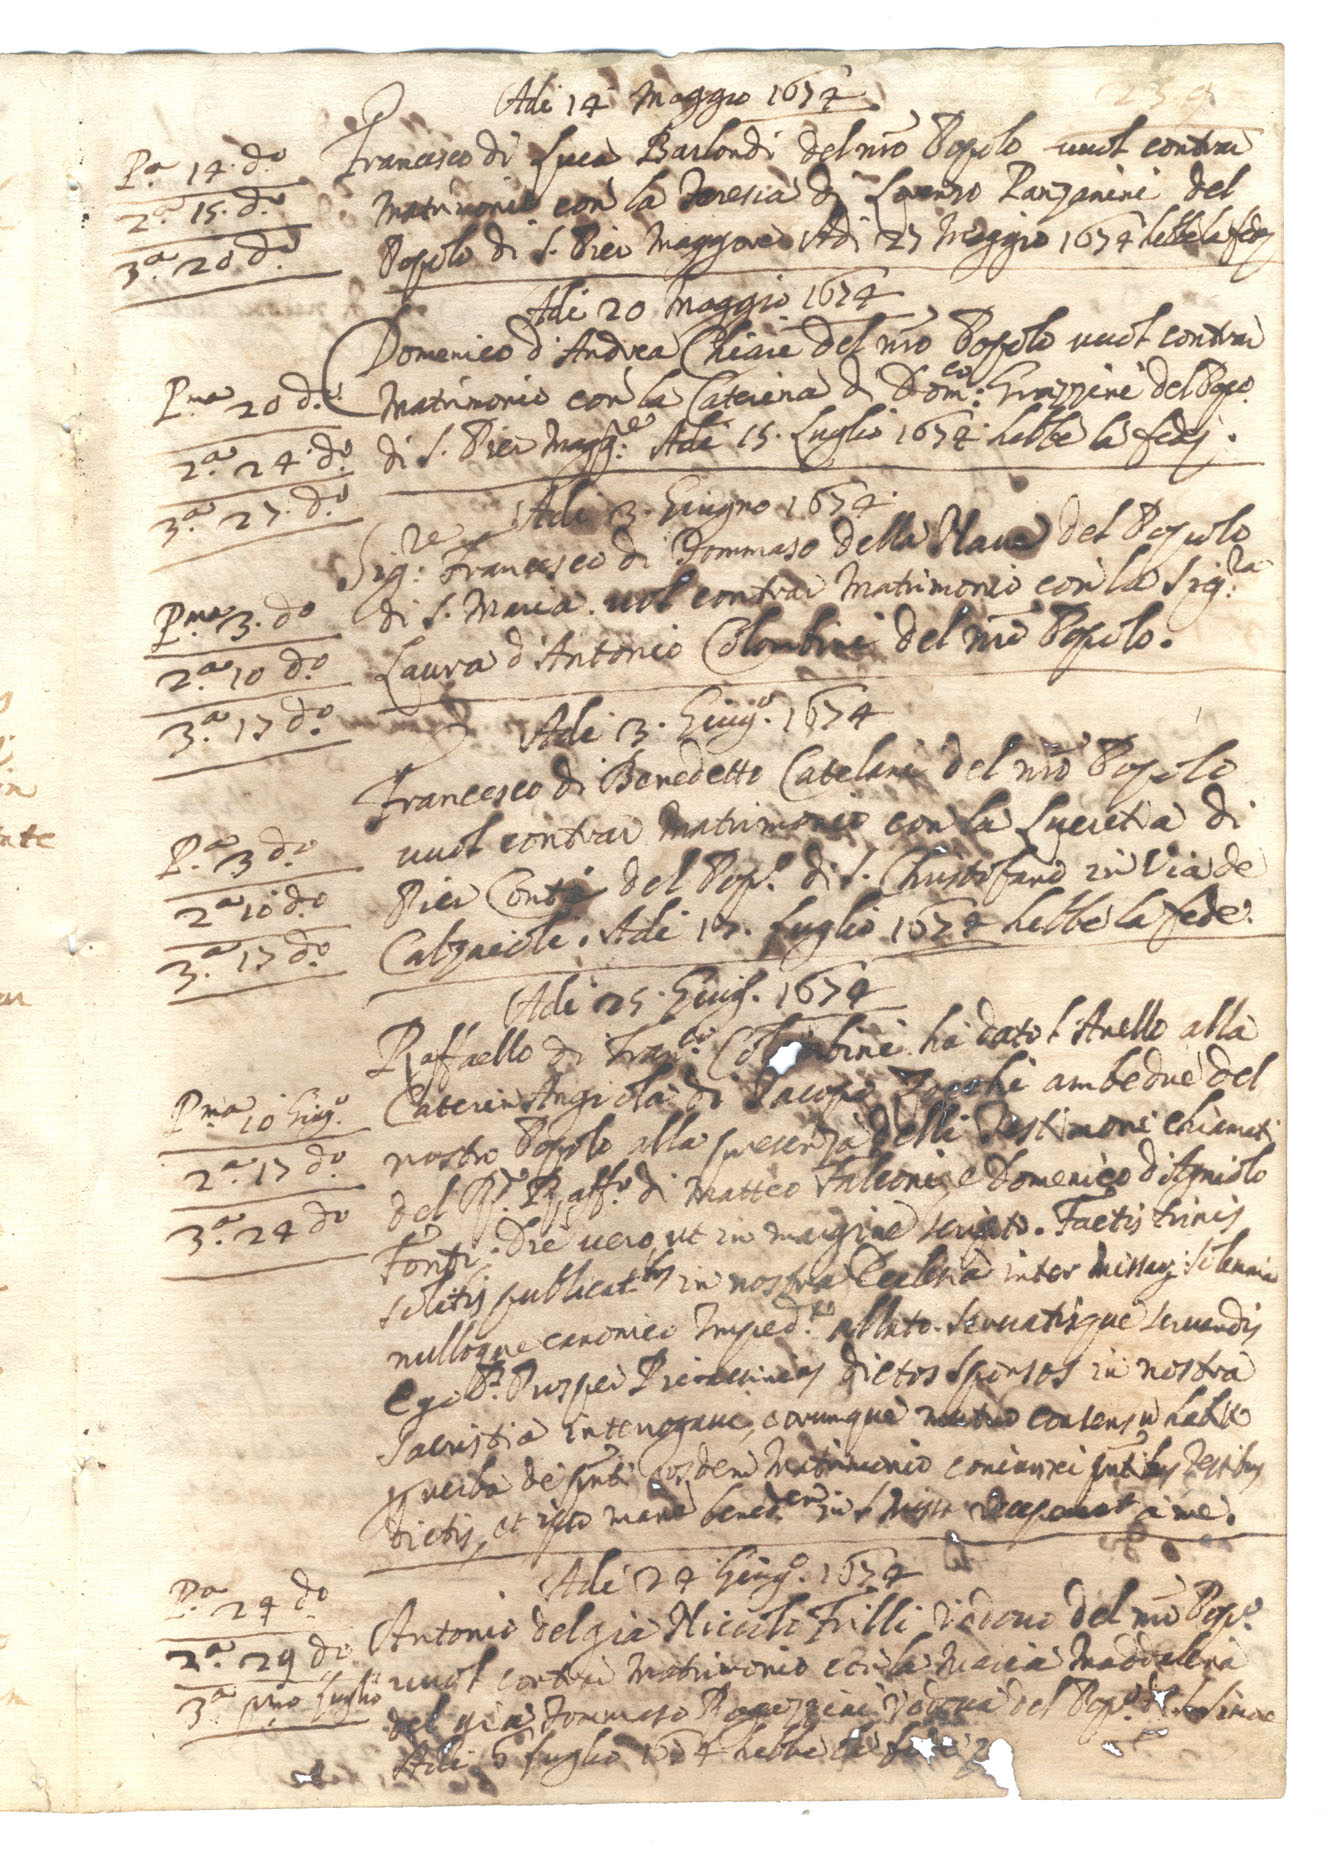 239
Adi 14 Maggio 1674
Francesco di Luca Barlondi del nrõ Popolo vuol contrar
Matrimonio con la Teresia di Lorenzo Panzanini del
Popolo di S. Pier Maggiore Adi 27 Maggio 1674 hebbe la fede
P.a 14 d.o
2.a 15 d.o
3.a 20 d.o
Adi 20 Maggio 1674
Domenico d'Andrea Chiari del nrõ Popolo vuol contrar
Matrimonio con la Caterina di Dom.co Grazzini del Popo.
di S. Pier Magg.re Adi 15 Luglio 1674 hebbe la fede.
P.ma 20 d.o
2.a 24 d.o
3.a 27 d.o
Adi 3 Giugno 1674
Sig.re Francesco di Tommaso della Nave del Popolo
di S. Maria vol contrar Matrimonio con la Sig.ra
Laura d'Antonio Colombini del nrõ Popolo.
P.ma 3 d.o
2.a 10 d.o
3.a 17 d.o
Adi 3 Giug.o 1674
Francesco di Benedetto Catelani del nrõ Popolo
vuol contrar Matrimonio con la Lucretia di
Pier Conti del Pop.o di S. Christofano in Via de
Calzaioli. Adi 17 Luglio 1674 hebbe la fede.
P.a 3 d.o
2.a 10 d.o
3.a 17 d.o
Adi 25 Giug.o 1674
Raffaello di Fran.co Colombini ha dato l'Anello alla
Caterin Angiola di Jacopo Zocchi ambedue del
nostro Popolo alla presenza delli Testimoni chiamati
del R. Raff.o di Matteo Falconi e Domenico d'Agniolo
Fonti. Die vero, ut in margine scripto. Factis trinis
solitis publicat.bus in nostra Ecclesia inter missar. solemnia
nulloque canonico Imped.to allato. servatisque servandis
Ego P. Prosper Pieraccinius dictos sponsos in nostra
Sacristia interrogavi, eorumque mutuo consensu habito
p verba de pñti eosdem Matrimonio coniunxi pñtibus Testibus
dictis, et isto mane bened.em in S. Missa receperunt a me.
P.ma 10 Giug.o
2.a 17 d.o
3.a 24 d.o
Adi 24 Giug.o 1674
Antonio del già Niccolò Frilli vedovo del nrõ Pop.o
vuol contrar Matrimonio con la Maria Maddalena
del già Tommaso vedova del Pop.o di
Adi 6 Luglio 1674 hebbe la fede
P.a 24 d.o
2.a 29 d.o
3.a p.mo Luglio